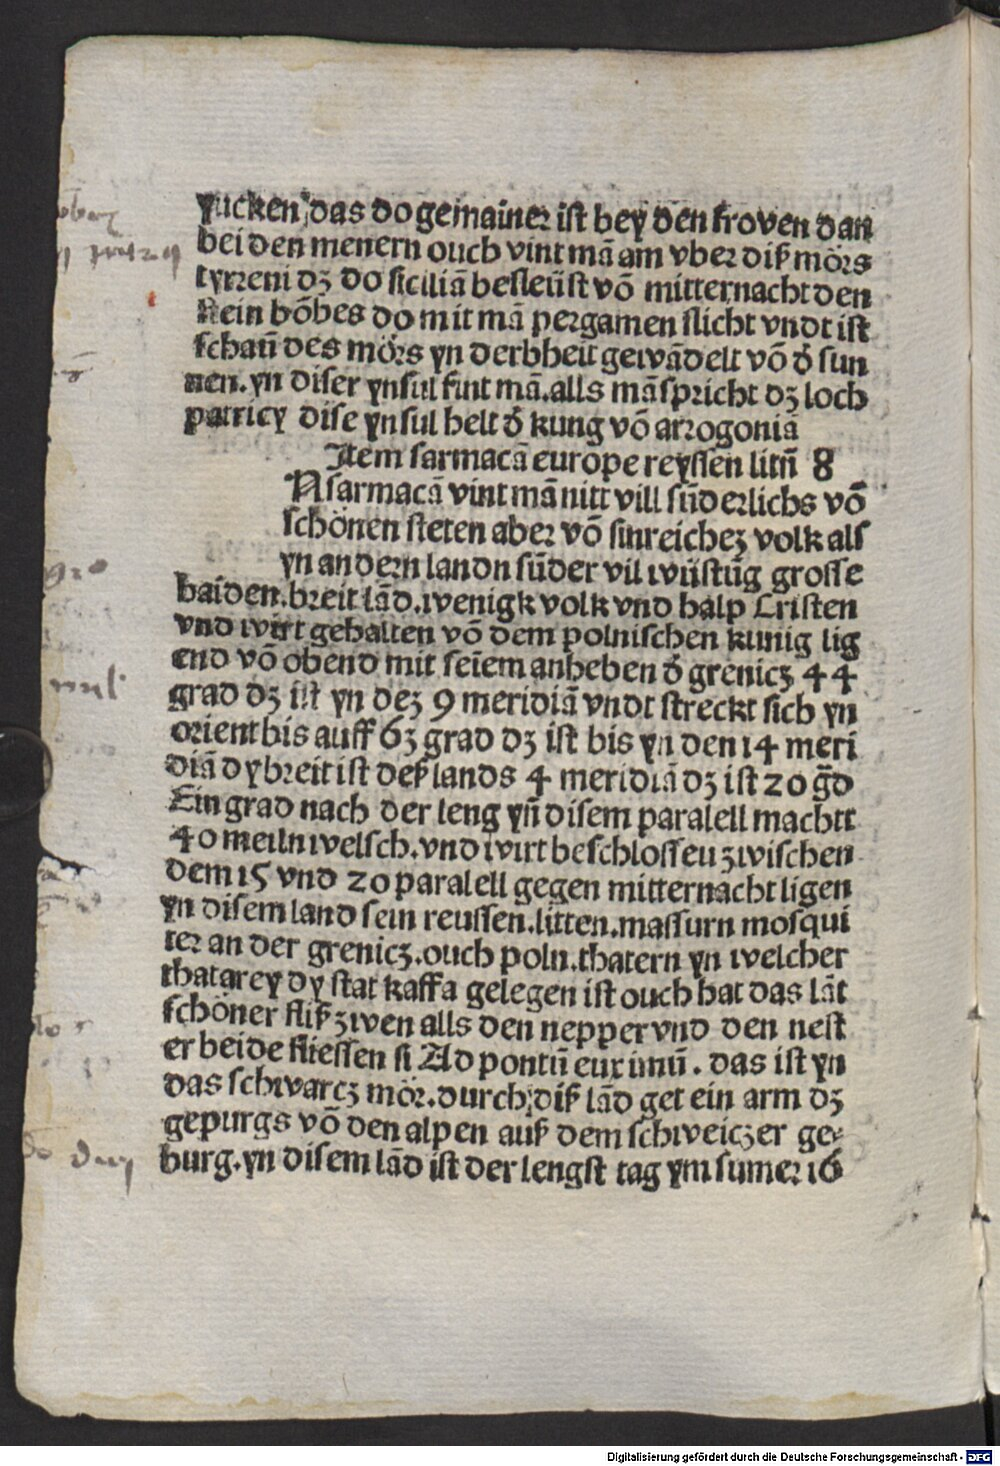 yucken das do gemainer ist bey den froven dan
bei den menern ouch vint mā am vber diß mörs
tyrreni dz do siciliā besleüst vō mitternacht den
stein bōbes do mit mā pergamen slicht vndt ist
schaū des mörs yn derbheit gewādelt vō ď sun
nen. yn diser ynsul fint mā. alls mā spricht dz loch
patricy dise ynsul helt ď kung vō arrogoniā
Item sarmacā europe reyssen littū 8
N sarmacā vint mā nitt vill sūderlichs vō
schönen steten aber vō sinreichez volk als
yn andern landn sūder vil wüstūg grosse
haiden. breit lād. wenigk volk vnd halp Cristen
vnd wirt gehalten vō dem polnischen kunig lig
end vō obend mit seīem anheben ď grenicz 44
grad dz ist yn dez 9 meridiā vndt streckt sich yn
orient bis auff 63 grad dz ist bis yn den 14 meri
diā dy breit ist deß lands 4 meridiā dz ist 20 g̅d
Ein grad nach der leng yn̄ disem paralell machtt
40 meiln welsch. vnd wirt beschlosseu zwischen
dem 15 vnd 20 paralell gegen mitternacht ligen
yn disem land sein reussen. litten. massurn mosqui
ter an der grenicz. ouch poln. thatern yn welcher
thatarey dy stat kaffa gelegen ist ouch hat das lāt
schöner fliß zwen alls den nepper vnd den nest
er beide fliessen si Ad pontū euximū. das ist yn
das schwarcz mör. durch diß lād get ein arm dz
gepurgs vō den alpen auß dem schweiczer ge⸗
burg. yn disem lād ist der lengst tag ym sumer 16
Digitalisierung gefördert durch die Deutsche Forschungsgemeinschaft - DFG